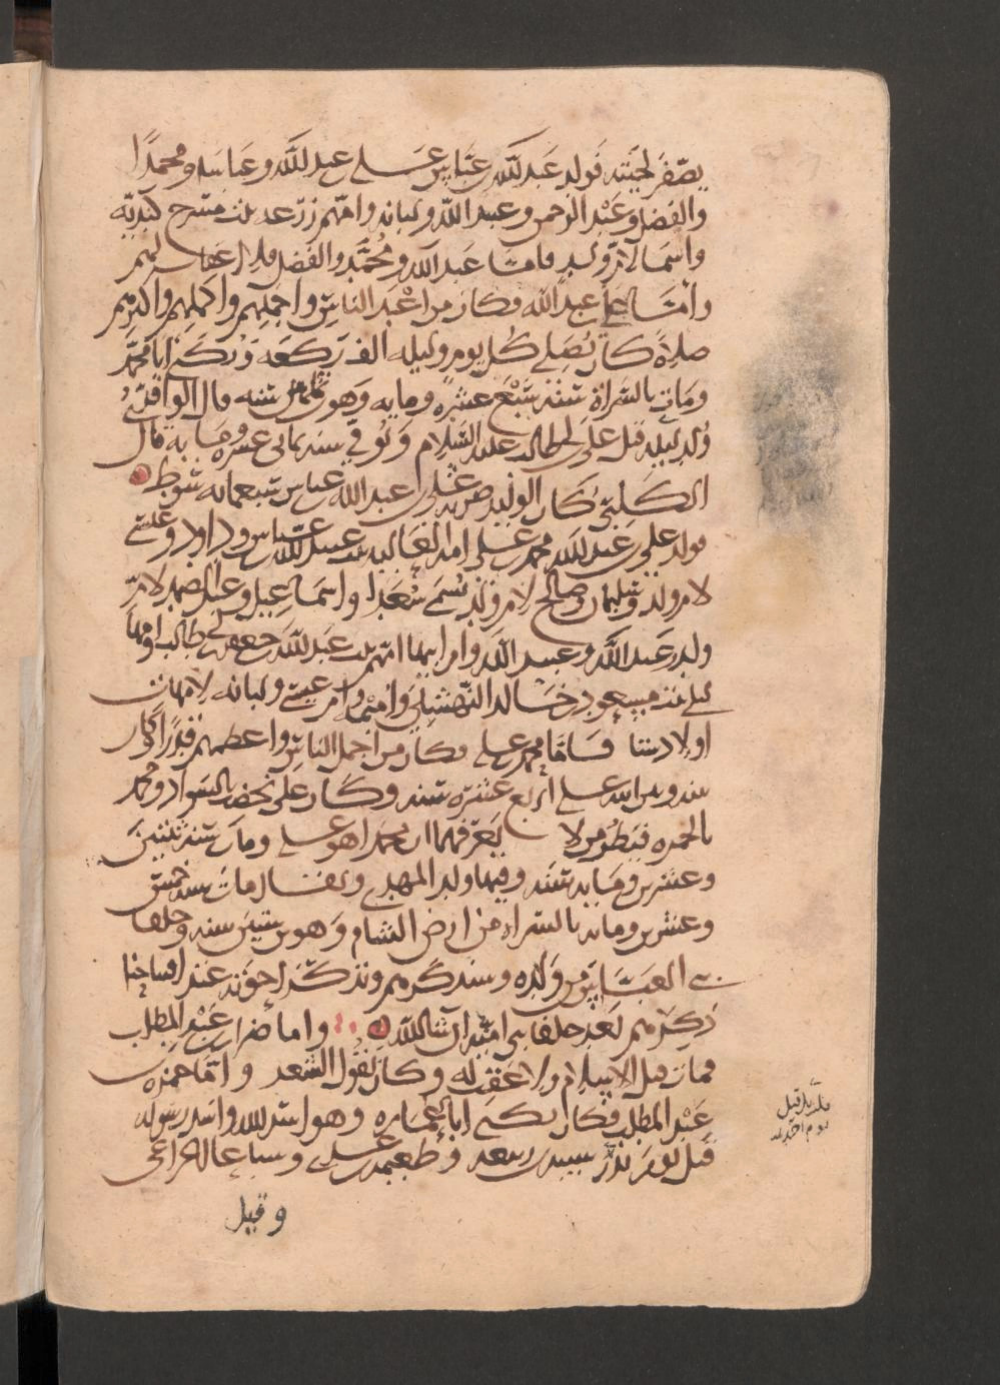 يصفر لحيته فولد عبد الله بن عباس علي بن عبد الله وعباسا ومحمدا
والفضل وعبد الرحمن وعبيد الله ولبابه وامهم زرعه بنت مشرح كنديه
واسما لام ولد فاما عبيد الله ومحمد والفضل فلا اعقاب لهم
واما علي بن عبد الله فكان من اعبد الناس واجملهم واكملهم واكثرهم
صلاة كان يصلي كل يوم وليله الف ركعه ويكنى ابا محمد
ومات بالسراة سنة سبع عشره ومايه وهو سنه قال الواقدي
ولد ليله قتل علي بن ابي طالب عليه السلام وتوفي سنه ثماني عشره ومايه قال
الكلبي كان الوليد ضرب علي بن عبد الله بن عباس سبعمايه سوط
فولد علي بن عبد الله محمد بن علي امه العاليه بنت عبيد الله بن عباس وداود وعيسى
لام ولد وسليمان وصالح لام ولد تسمى سعدا واسماعيل وعبد الصمد لام
ولد وعبد الله وعبيد الله وام ابيها امهم بنت عبد الله بن جعفر بن ابي طالب وامها
ليلى بنت مسعود بن خالد النهشلي وامينه وام عيسى ولبابه لامهات
اولاد شتا فاما محمد بن علي فكان من اجمل الناس واعظمهم قدرا وكان
بينه وبين ابيه علي اربع عشره سنه وكان علي يخضب بالسواد ومحمد
بالحمره فيظن من لا يعرفهما ان محمدا هو علي ومات سنة ثنتين
وعشرين ومايه سنه وفيها ولد المهدي ويقال مات سنه خمس
وعشرين ومايه بالسراه من ارض الشام وهو بن ستين سنه وخلفا
بني العباس من ولده وسنذكرهم ونذكر اخوته عند افتتاحنا
ذكرهم بعد خلفا بني اميه ان شا الله واما ضرار بن عبد المطلب
فمات قبل الاسلام ولا عقب له وكان يقول الشعر واما حمزه بن
عبد المطلب فكان يكنى ابا عماره وهو اسد الله واسد رسوله
قتل يوم بدر شيبه بن ربيعه وطعيمه بن عدي وسباعا الخزاعي
وقيل
قلت بل قتل
يوم احد